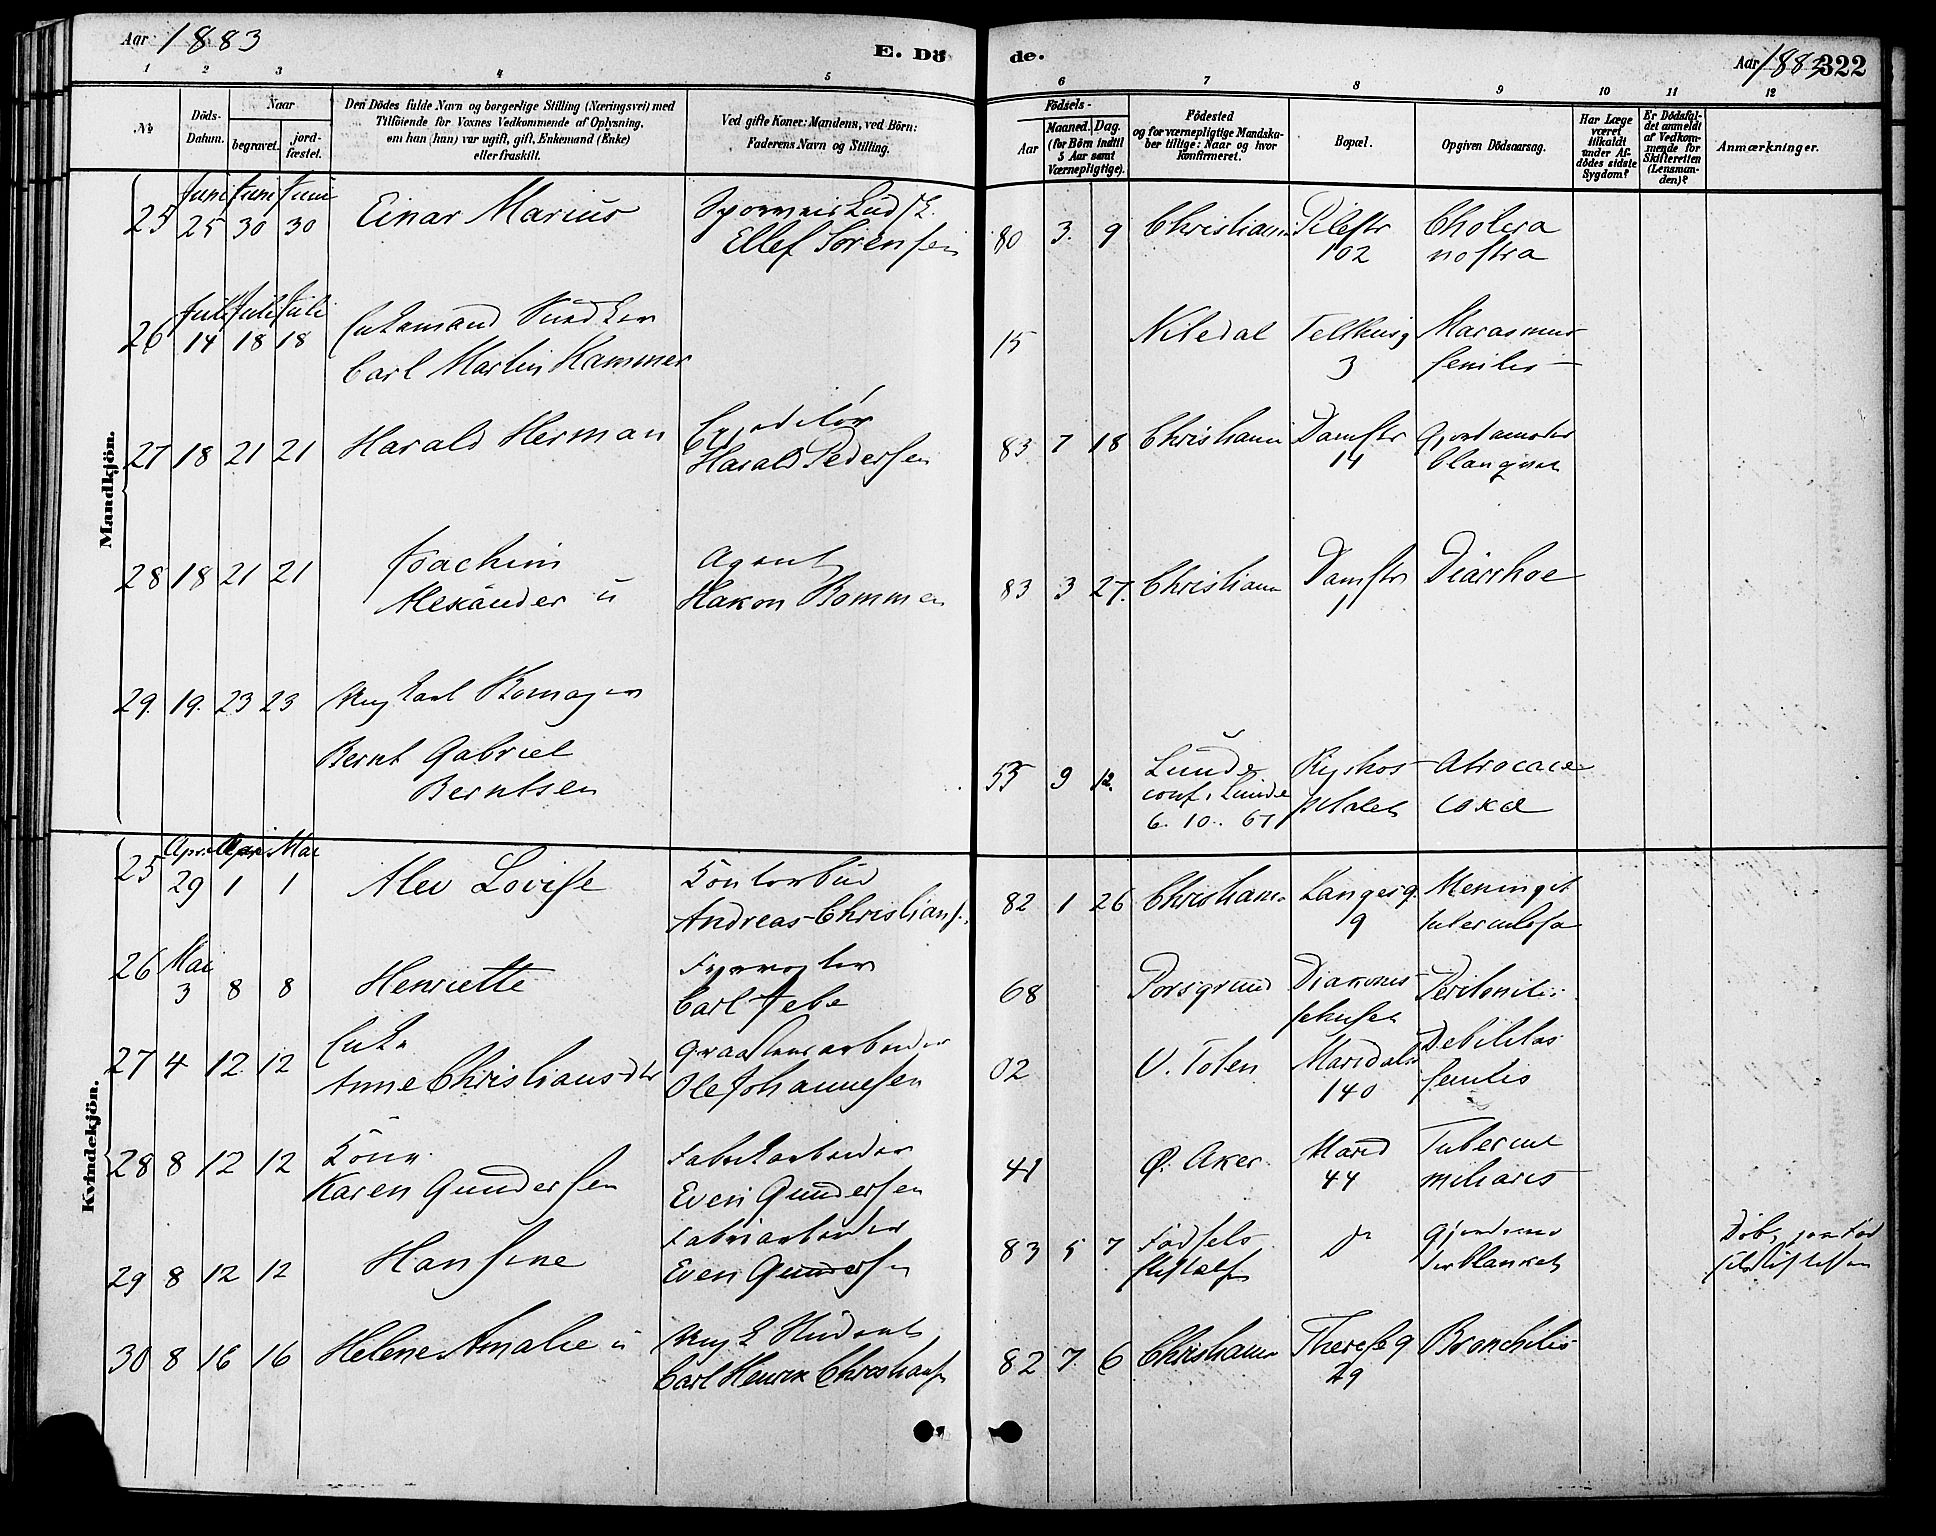 Aar 1883
E. Dö
de.
Aar 1883
322
1 2 3 4 5 6 7 8 9 10 11 12
No
Döds-
Datum.
Naar
begravet.
jord-
fæstet.
Den Dödes fulde Navn og borgerlige Stilling (Næringsvei) med
Tilföiende for Voxnes Vedkommende af Oplysning,
om han (hun) var ugift, gift, Enkemand (Enke)
eller fraskilt.
Ved gifte Koner: Mandens, ved Börn:
Faderens Navn og Stilling.
Födsels-
Aar
Maaned. Dag.
(for Börn indtil
5 Aar samt
Værnepligtige).
Födested
og for værnepligtige Mandska-
ber tillige: Naar og hvor
konfirmeret.
Bopæl.
Opgiven Dödsaarsag.
Har Læge
været
tilkaldt
under Af-
dödes sidste
Sygdom?
Er Dödsfal-
det anmeldt
af Vedkom-
mende for
Skifteretten
(Lensman-
den)?
Anmærkninger.
Mandkjön.
Juni Juni Juni
25 25 30 30 Einar Marius
Ellef Sörensen
80 3. 9 Christiania Pilestr 102 Cholera nostra
Juli Juli Juli
26 14 18 18 Enkemand
Carl Martin Hammer
15 Nitedal 3 Marasmus senilis
27 18 21 21 Harald Herman
Harald Pedersen
83 7 18 Christiania Damstr 14
28 18 21 21 Joachim Alexander u
Agent
Hakon Bommen
83 3 27. Christiania Damstr 1 Diarrhoe
29. 19. 23 23 Ungkarl
Bernt Gabriel
Berntsen
55 9 12. Lunde
conf. Lunde
6. 10. 67
Rigshospitalet
coxæ
Kvindekjön.
April Mai
25 29 1 1 Alev Lovise
Kontorbud
Andreas Christians.
82 1 26 Christiania Langesg. 9 Meningit tuberculosa
Mai
26 3 8 8 Henriette
Carl Jebe
68 Porsgrund Diakonissehuset Peritonitis
27 4 12 12 Enke
Anne Christiansdtr
Ole Johannesen
02 V. Toten Maridals 140 Debilitas senilis
28 8 12 12 Kone
Karen Gundersen
Fabrikarbeider
Even Gundersen
41 Ø. Aker Marid 44 Tubercul miliaris
29 8 12 12 Hansine
Fabrikarbeider
Even Gundersen
83 5 7 Födsels
stiftelsen
30 8 16 16 Helene Amalie u
Student
Carl Henrik Christians
82 7. 6 Christiania Theresesg 29 Bronchitis